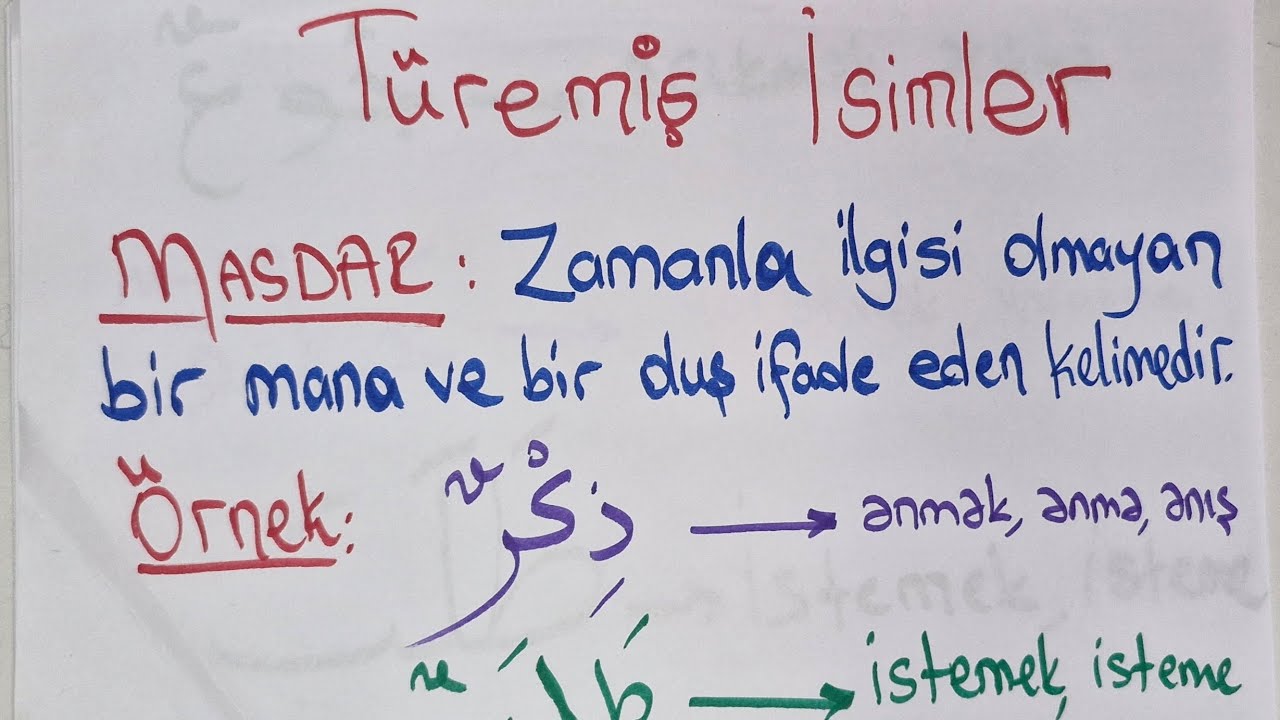 Türemiş İsimler
MASDAR: Zamanla ilgisi olmayan
bir mana ve bir duş ifade eden kelimedir.
Örnek: ذِكْرٌ → anmak, anma, anış
istemek, isteme